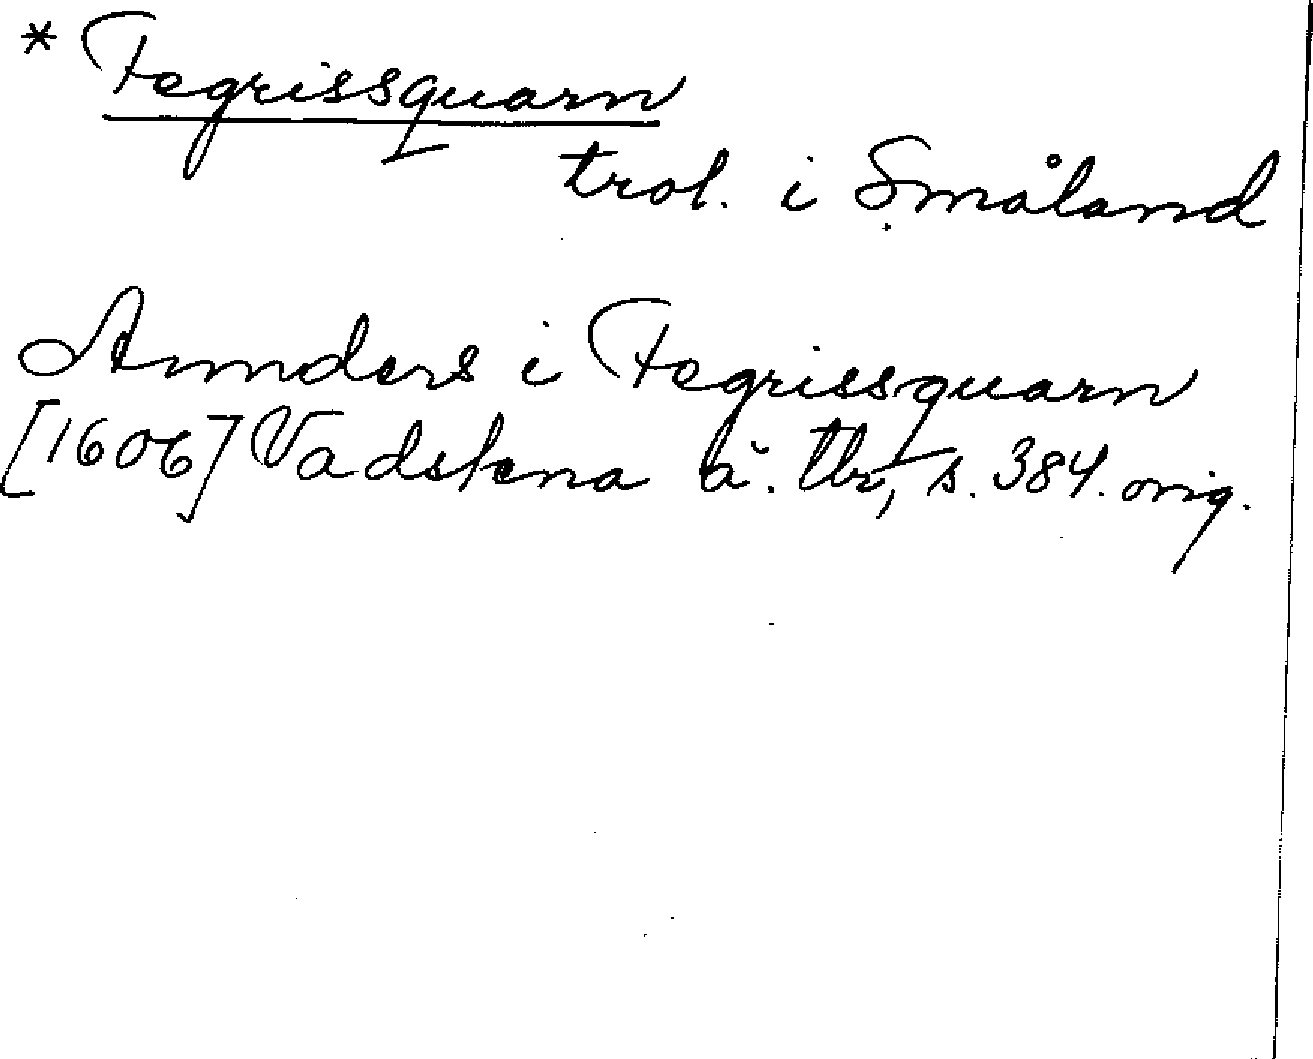 * Fegrissquarn
trol. i Småland
Annders i Fegrissquarn
[1606] Vadstena ä. tbr, s. 384. orig.